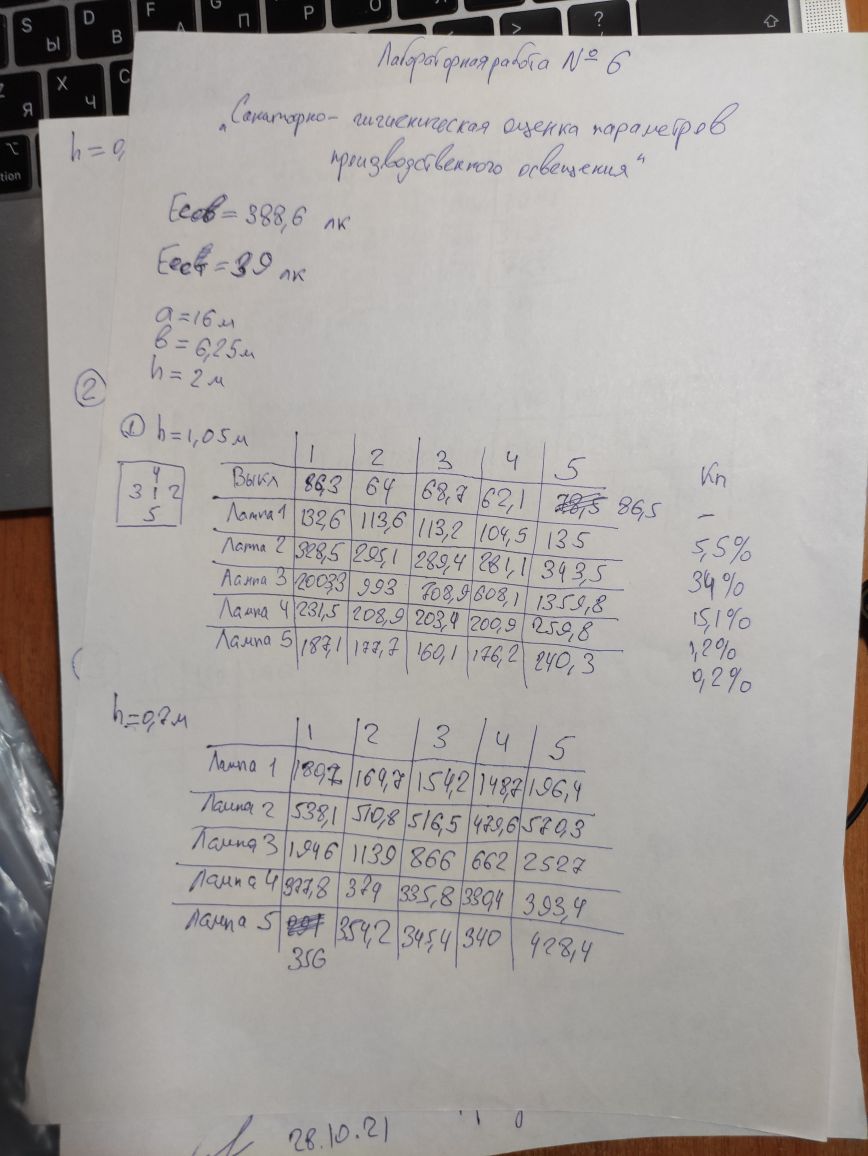 S Ы D В F А G П Р О > < ? /
Я X Ч C
tion
h = 0,
Лабораторная работа №6
"Санитарно-гигиеническая оценка параметров
производственного освещения"
Eсов = 388,6 лк
Eест = 39 лк
a = 16 м
в = 6,25 м
h = 2 м
②
① h = 1,05 м
4
3 1 2
5
1 2 3 4 5 Кп
Выкл 86,3 64 68,7 62,1 78,5 86,5 –
Лампа 1 132,6 113,6 113,2 104,5 135 5,5%
Лампа 2 328,5 295,1 289,4 281,1 343,5 34%
Лампа 3 2003,3 993 708,9 608,1 1359,8 15,1%
Лампа 4 231,5 208,9 203,4 200,9 259,8 1,2%
Лампа 5 187,1 177,7 160,1 176,2 240,3 0,2%
h = 0,7 м
1 2 3 4 5
Лампа 1 189,7 164,7 154,2 148,7 196,4
Лампа 2 538,1 510,8 516,5 479,6 570,3
Лампа 3 1946 1139 866 662 2527
Лампа 4 377,8 379 335,8 330,4 393,4
Лампа 5 354,2 345,4 340 428,4
356
28.10.21